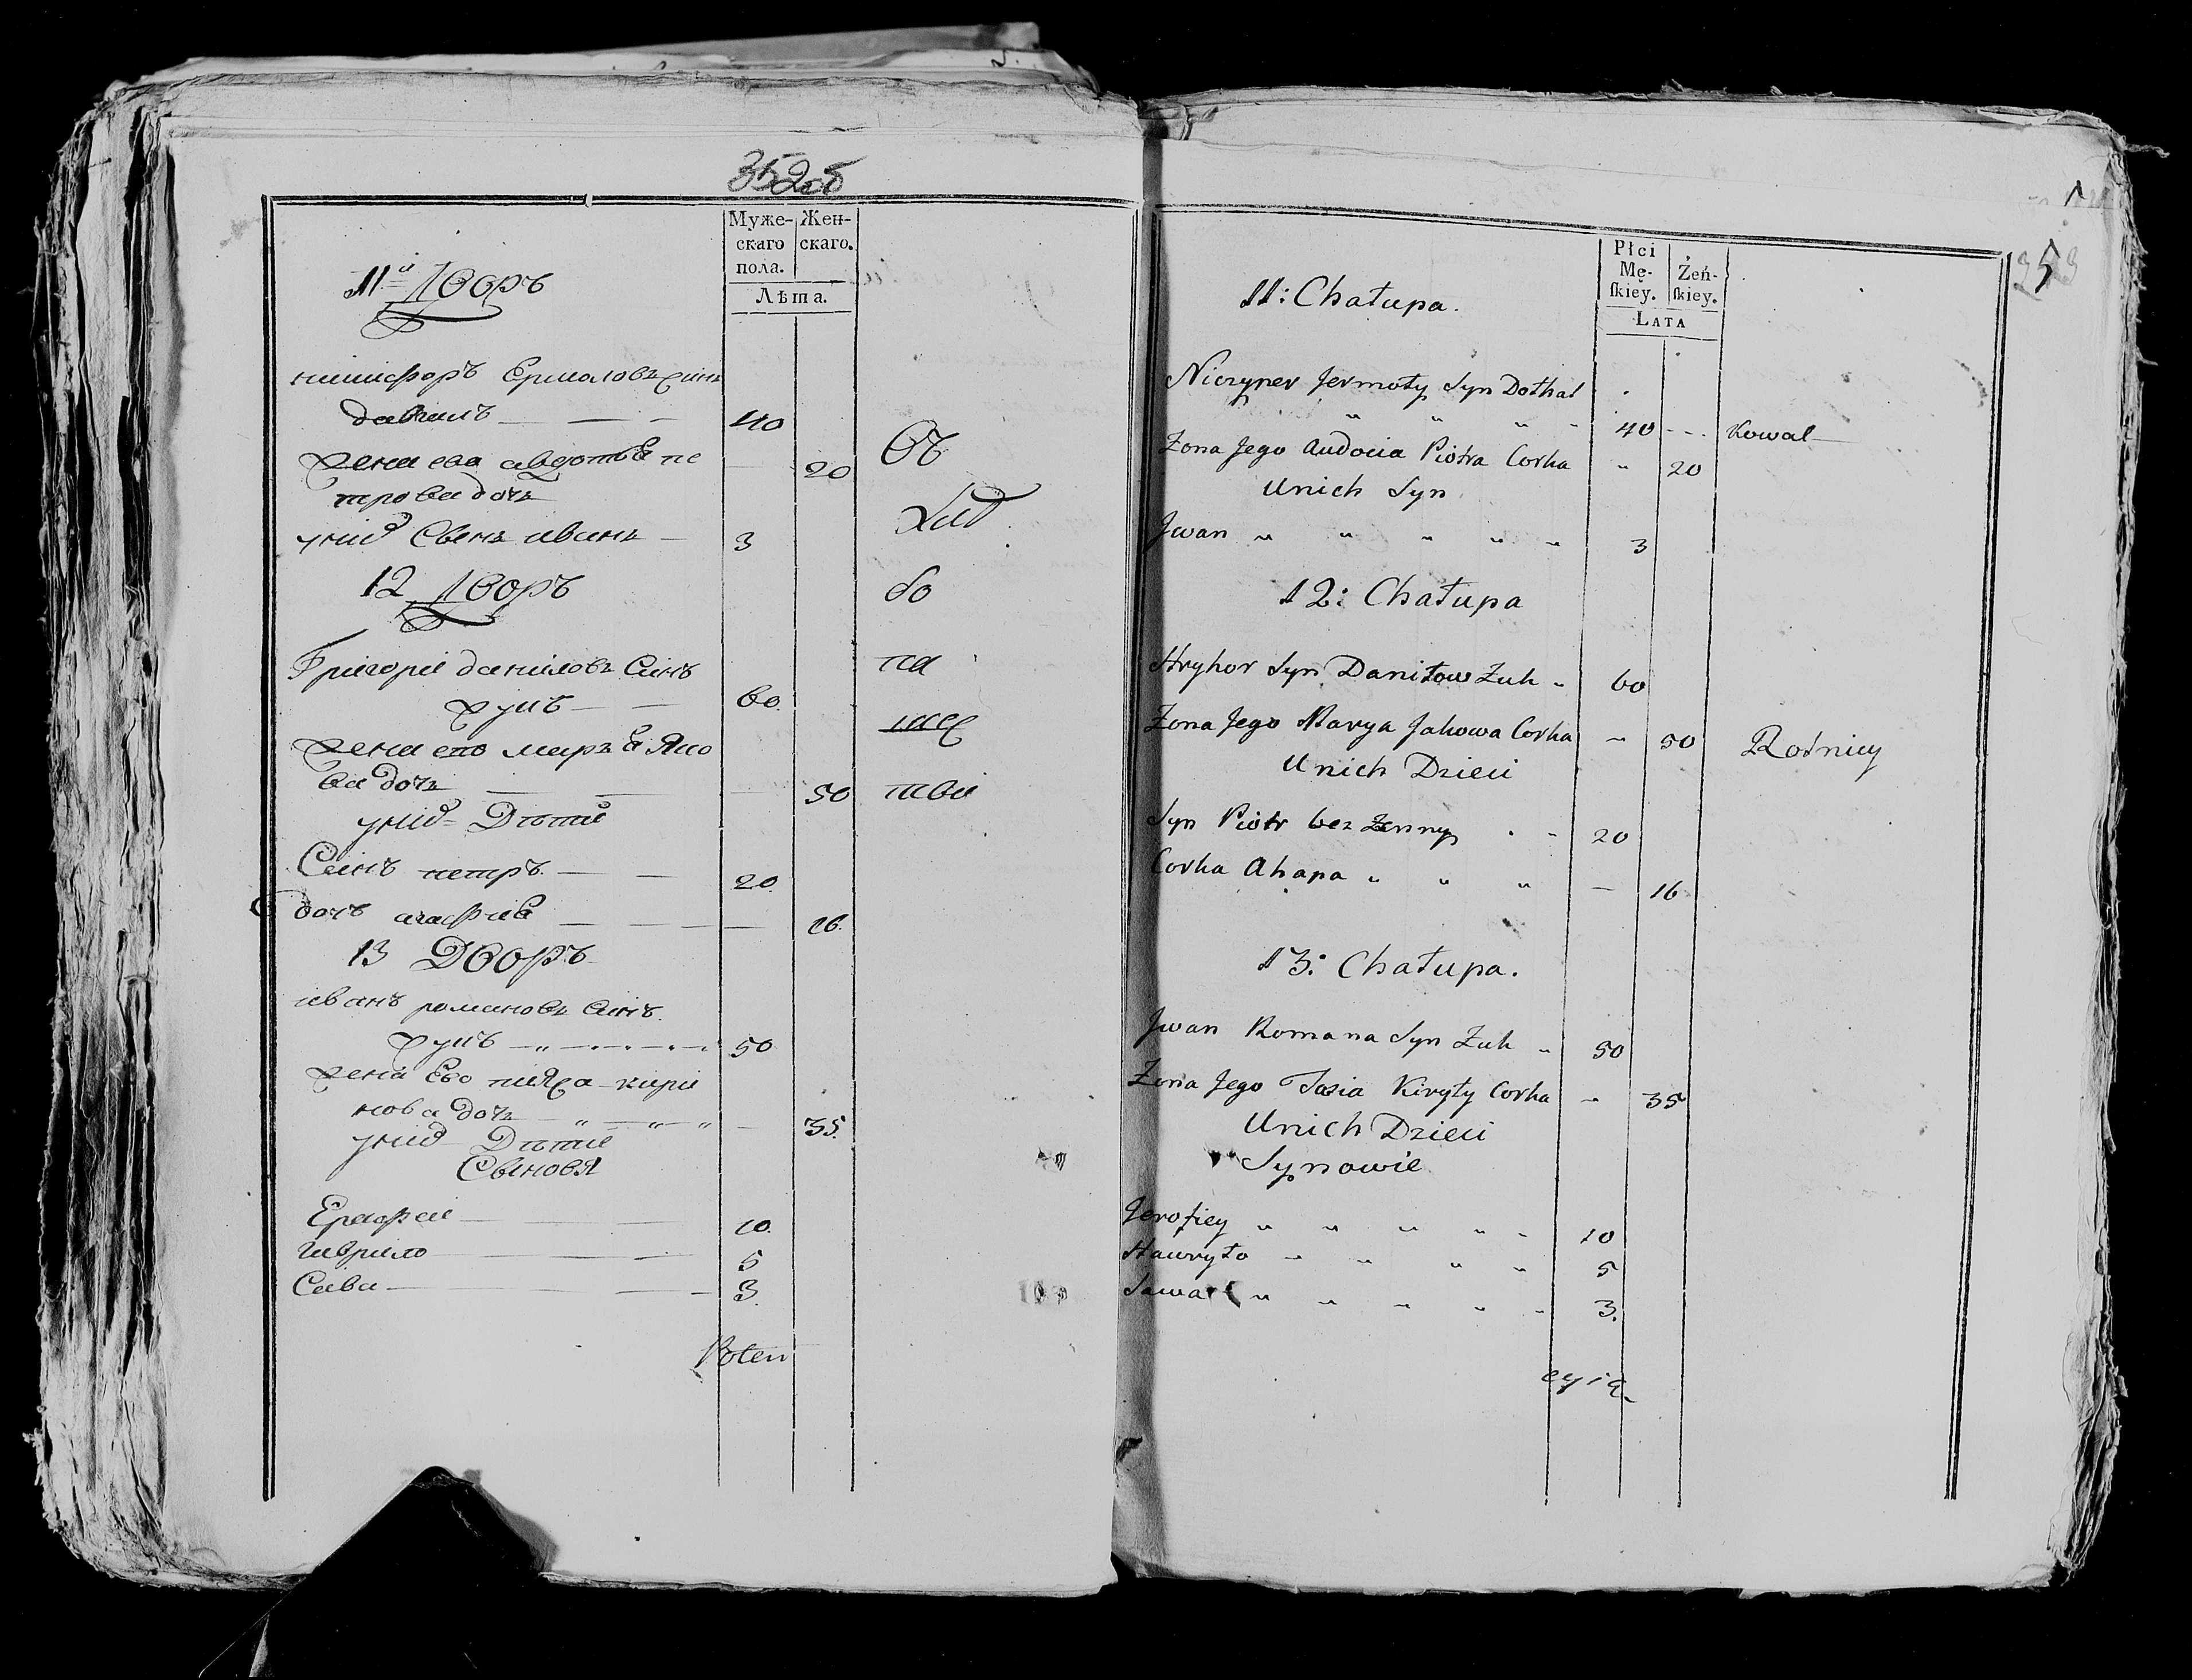 352об
Муже- Жен-
скаго скаго.
пола.
Лѣта.
11й Дворъ
никифоръ Ермаловъ Синъ
40
жена ево авдотья пе 20
трова дочъ
уних Сынъ иванъ 3
12 Дворъ
Григорiй даниловъ Синъ
жукъ 60
жена ево марья Яко
ва дочъ 50
уних Дѣти
Синъ петръ 20.
дочъ агафия 16.
13 Дворъ
иванъ романовъ Синъ
жукъ 50
жена Ево кири
лова дочъ 35.
уних Дѣти
Сыновя
Ерофей 10.
гаврило 5
Сава 3.
въ
хлѣ
бо
па
шес
тве
353
Płci
Mę- Żeń-
ſkiey. ſkiey.
LATA
11: Chałupa.
Niczyper Jermoły Syn
40 Kowal
Zona Jego Audocia Piotra Corka 20
Unich Syn
Jwan 3
12: Chałupa
Hryhor Syn Daniłow Zuk 60
Zona Jego Marya Jakowa Corka 50 Rolnicy
Unich Dzieci
Syn Piotr bez Zenny 20
Corka Ahapa 16
13: Chałupa.
Jwan Romana Syn Zuk 50
Zona Jego Tasia Kiryły Corka 35
Unich Dzieci
Synowie
Jerofiey 10
Hawryło 5
Sawa 3.